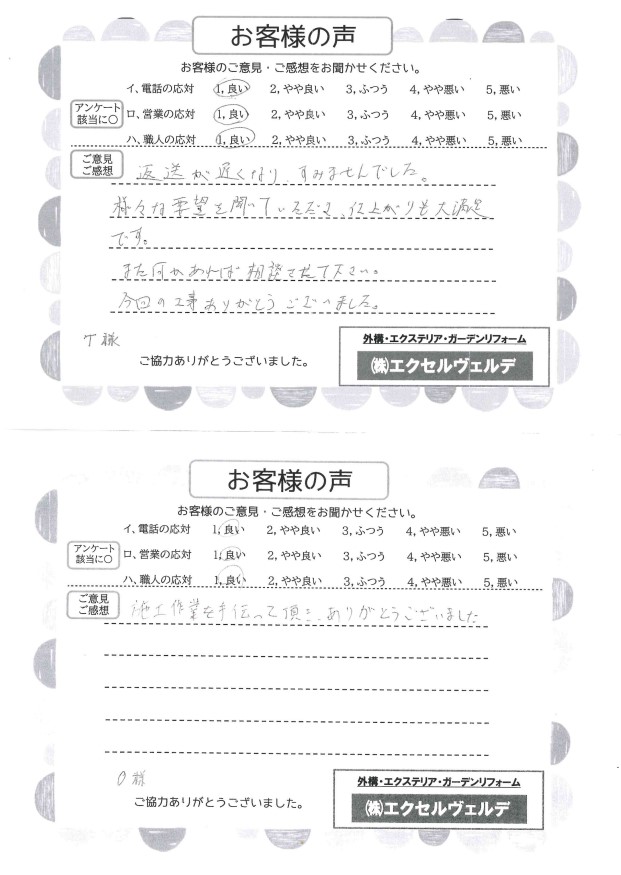 お客様の声
お客様のご意見・ご感想をお聞かせください。
イ、電話の応対 1,良い 2,やや良い 3,ふつう 4,やや悪い 5,悪い
アンケート
該当に○
ロ、営業の応対 1,良い 2,やや良い 3,ふつう 4,やや悪い 5,悪い
ハ、職人の応対 1,良い 2,やや良い 3,ふつう 4,やや悪い 5,悪い
ご意見
ご感想
返送が遅くなり、すみませんでした。
様々な要望を聞いていただき、仕上がりも大満足
です。
また何かあれば相談させて下さい。
今回の工事ありがとうございました。
様
ご協力ありがとうございました。
外構・エクステリア・ガーデンリフォーム
㈱エクセルヴェルデ
お客様の声
お客様のご意見・ご感想をお聞かせください。
イ、電話の応対 1,良い 2,やや良い 3,ふつう 4,やや悪い 5,悪い
アンケート
該当に○
ロ、営業の応対 1,良い 2,やや良い 3,ふつう 4,やや悪い 5,悪い
ハ、職人の応対 1,良い 2,やや良い 3,ふつう 4,やや悪い 5,悪い
ご意見
ご感想
施工作業を手伝って頂き、ありがとうございました
O様
ご協力ありがとうございました。
外構・エクステリア・ガーデンリフォーム
㈱エクセルヴェルデ